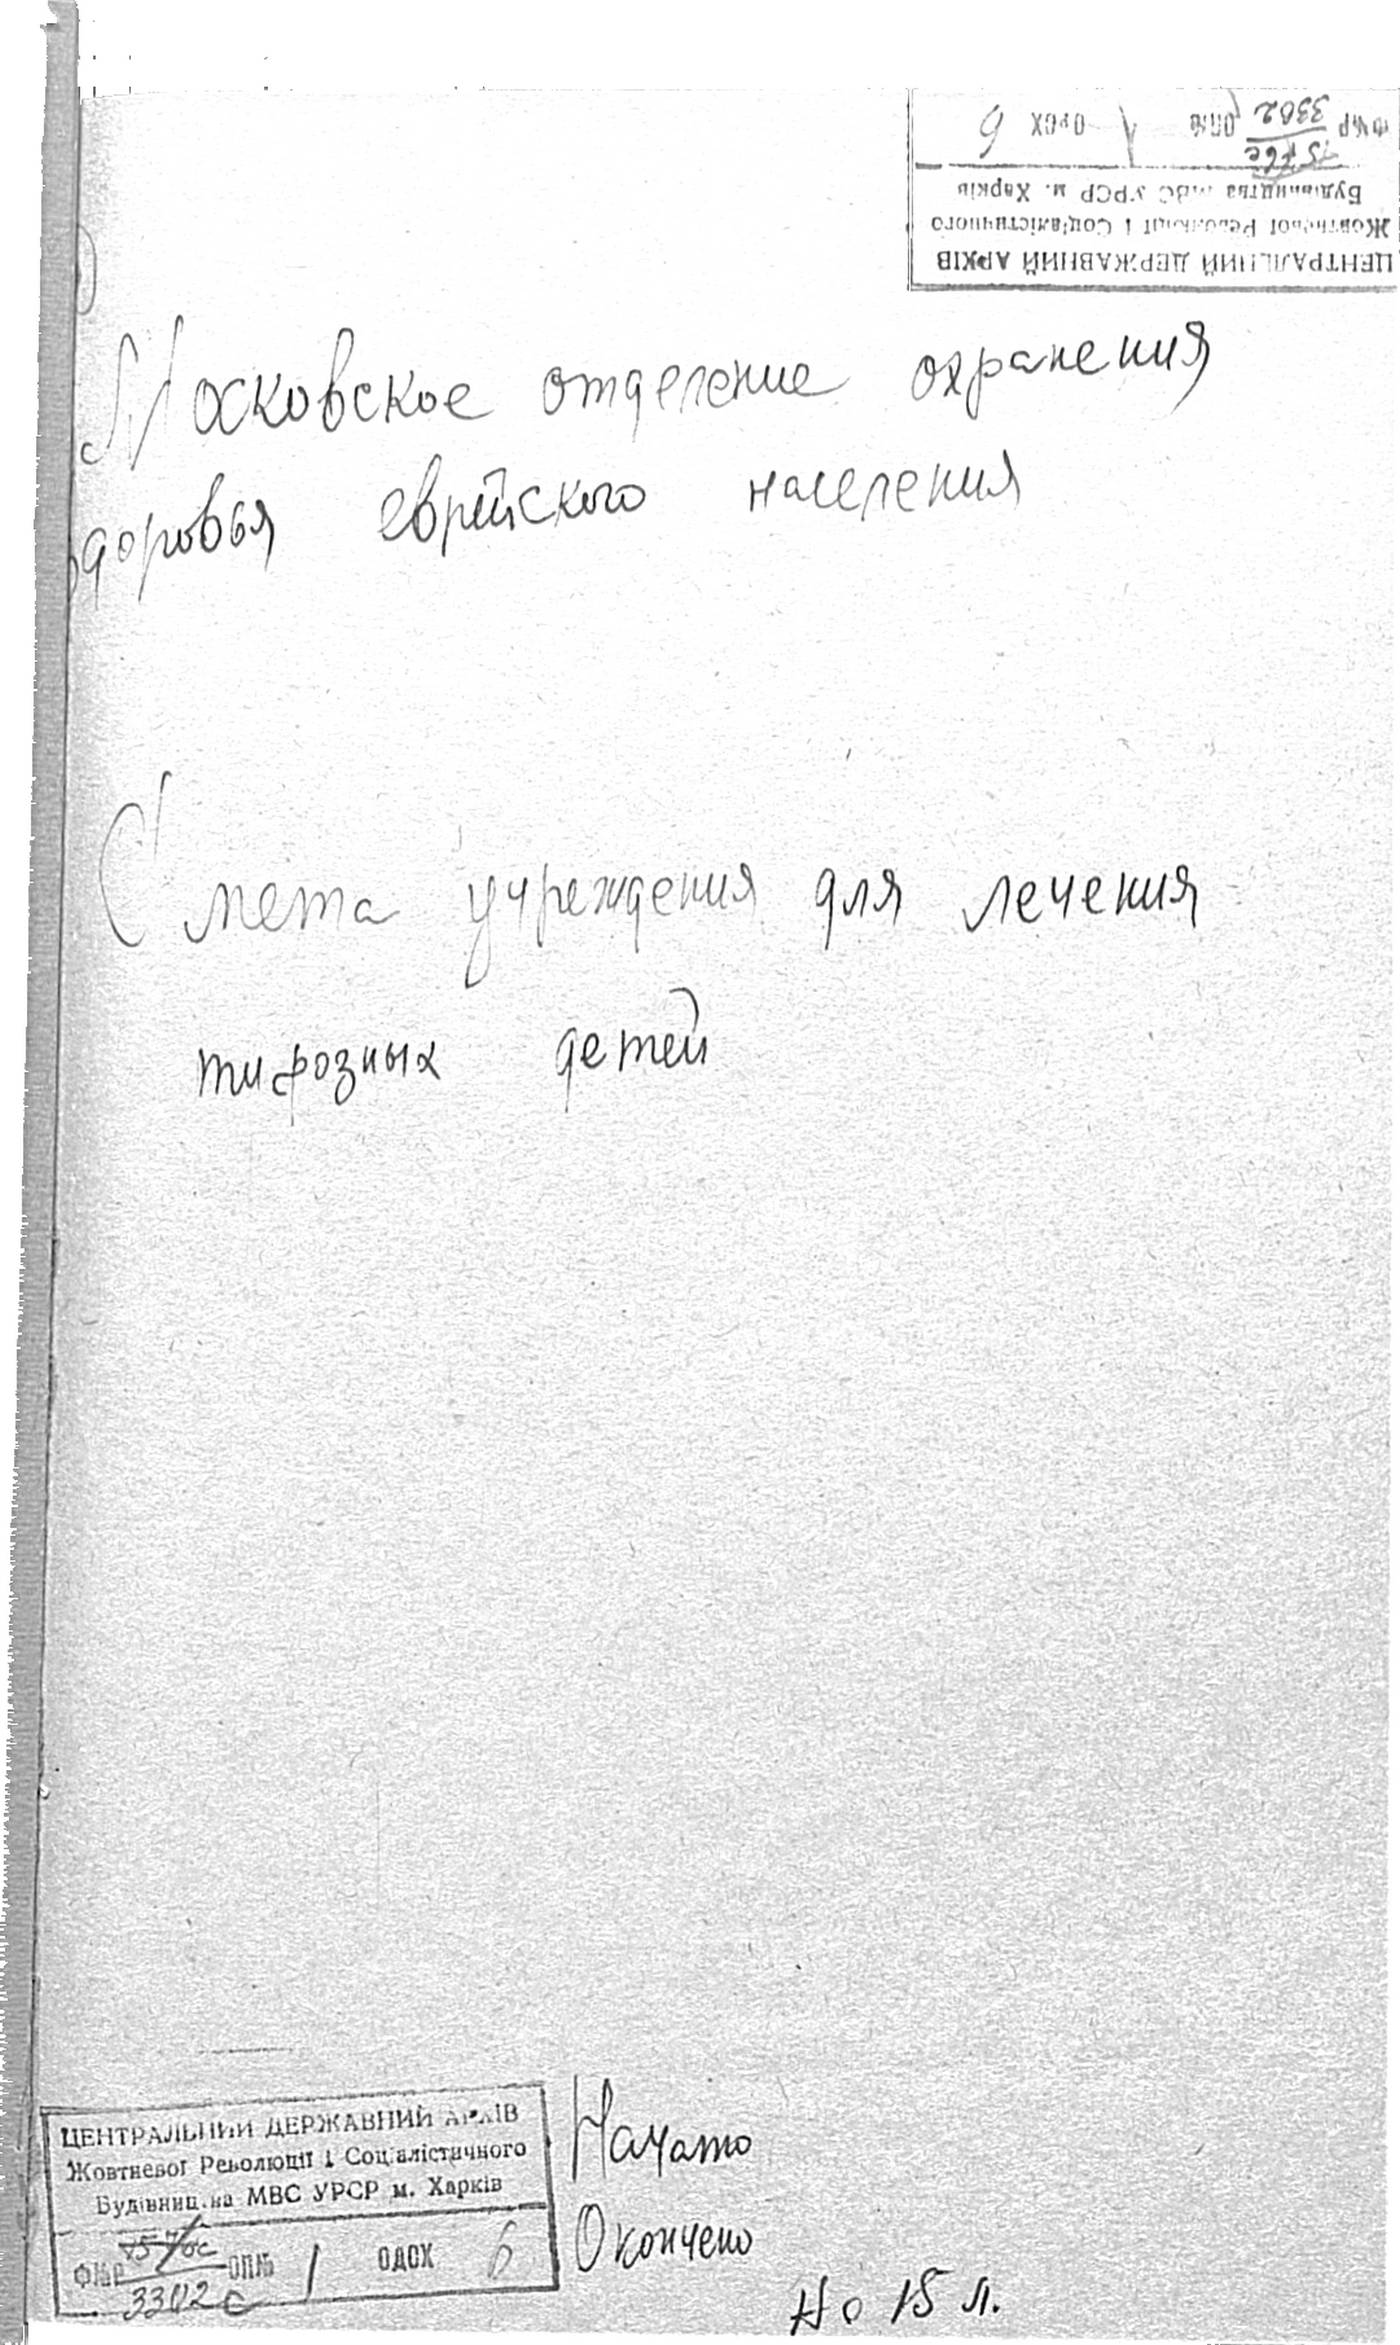 ЦЕНТРАЛЬНИЙ ДЕРЖАВНИЙ АРХІВ
Жовтневої Революції і Соціалістичного
Будівництва МВС УРСР м. Харків
Ф№Р 1576с ОП№ 1 ОДОХ 6
3302
Московское отделение охранения
здоровья еврейского населения
Смета учреждения для лечения
тифозных детей
ЦЕНТРАЛЬНИЙ ДЕРЖАВНИЙ АРХІВ
Жовтневої Революції і Соціалістичного
Будівництва МВС УРСР м. Харків
Ф№Р 1576с ОП№ 1 ОДОХ 6
3302 с
Начато
Окончено
На 15 л.